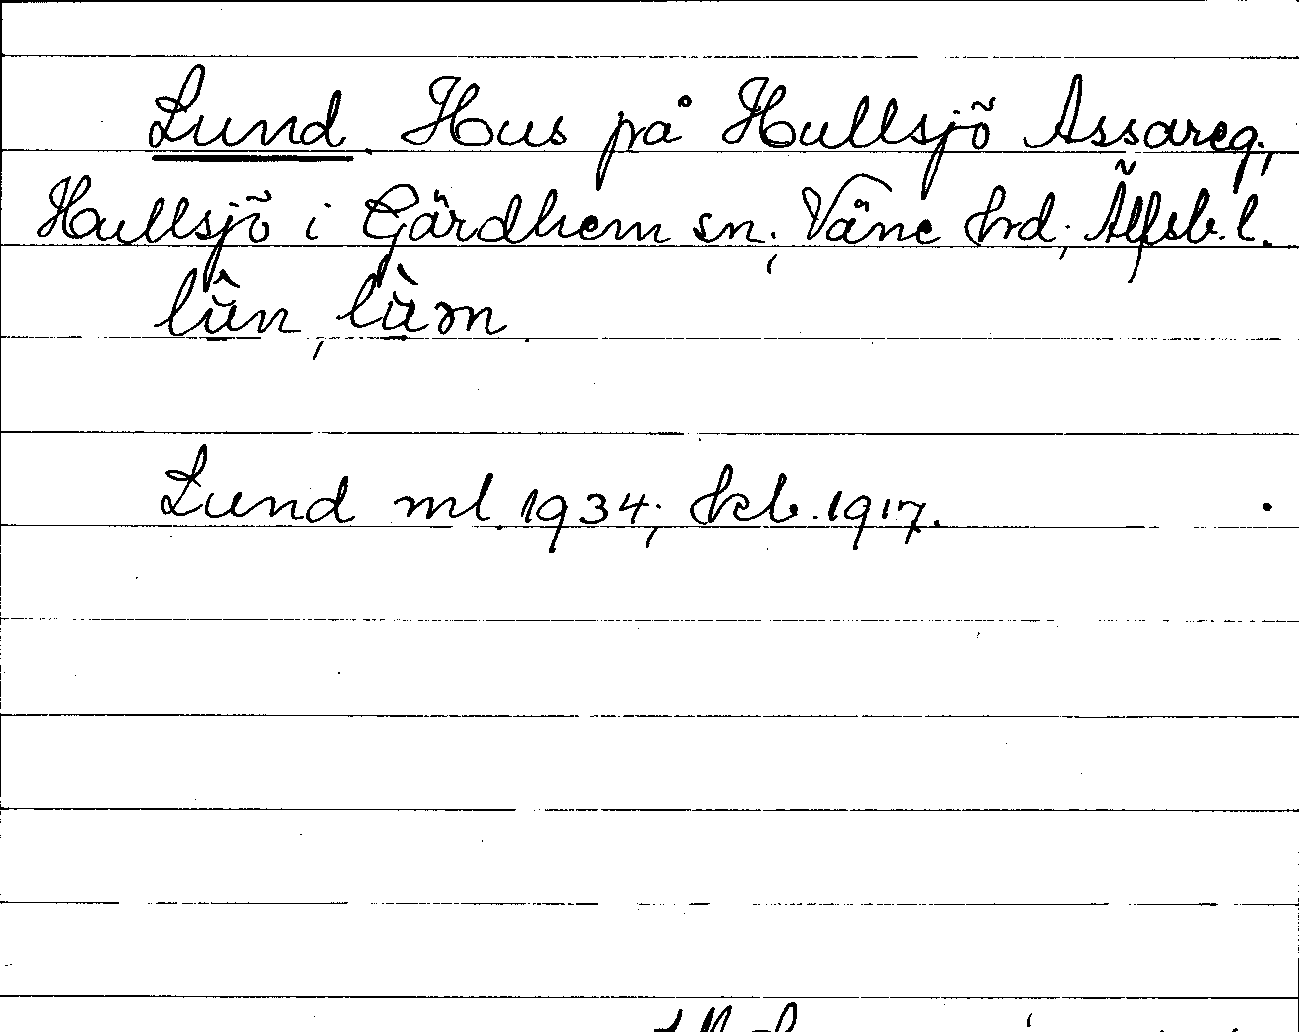 Lund. Hus på Hullsjö Assareg.,
Hullsjö i Gärdhem sn, Väne hrd, Älfsb. l.
lu᷇n, lu᷇n
Lund ml. 1934; hkb. 1917.